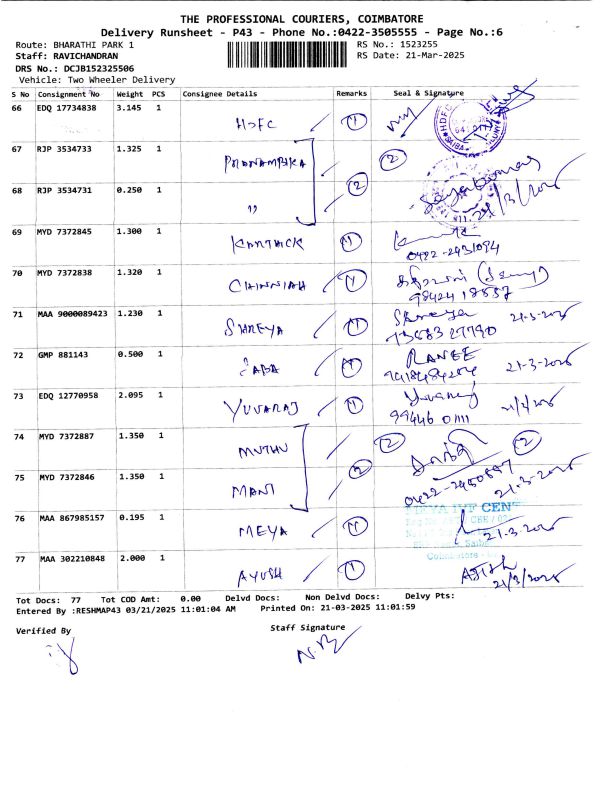 THE PROFESSIONAL COURIERS, COIMBATORE
Delivery Runsheet - P43 - Phone No.:0422-3505555 - Page No.:6
Route: BHARATHI PARK 1 RS No.: 1523255
Staff: RAVICHANDRAN RS Date: 21-Mar-2025
DRS No.: DCJB152325506
Vehicle: Two Wheeler Delivery
S No Consignment No Weight PCS Consignee Details Remarks Seal & Signature
66 EDQ 17734838 3.145 1 HDFC 1
67 RJP 3534733 1.325 1 PRANAMBIKA 2
68 RJP 3534731 0.250 1 " 2
69 MYD 7372845 1.300 1 KARTHICK 1
0422-2431094
70 MYD 7372838 1.320 1 CHINNIAH 1
98424 18557
71 MAA 9000089423 1.230 1 SHREYA 1 Shreya 21-3-2025
72 GMP 881143 0.500 1 1 RANEE
21-3-2025
73 EDQ 12770958 2.095 1 YUVARAJ 1 Yuvaraj
99446 01111
74 MYD 7372887 1.350 1 MUTHU 2 2
75 MYD 7372846 1.350 1 MANI 2
21-3-2025
76 MAA 867985157 0.195 1 MEYA 1 21-3-2025
77 MAA 302210848 2.000 1 AYUSH 1
21/3/2025
Tot Docs: 77 Tot COD Amt: 0.00 Delvd Docs: Non Delvd Docs: Delvy Pts:
Entered By :RESHMAP43 03/21/2025 11:01:04 AM Printed On: 21-03-2025 11:01:59
Verified By Staff Signature